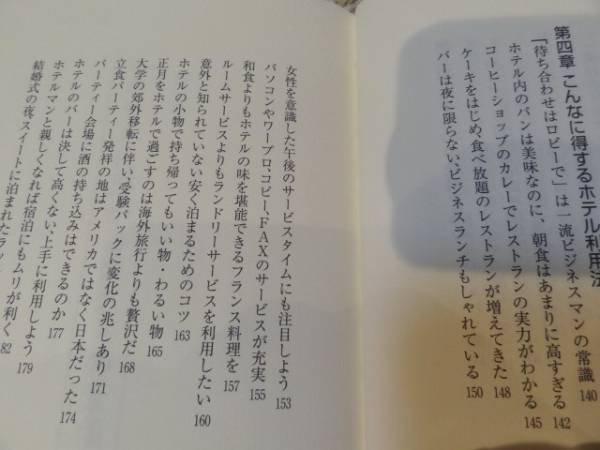 第四章 こんなに得するホテル利用法
「待ち合わせはロビーで」は一流ビジネスマンの常識 140
ホテル内のパンは美味なのに、朝食はあまりに高すぎる 142
コーヒーショップのカレーでレストランの実力がわかる 145
ケーキをはじめ、食べ放題のレストランが増えてきた 148
バーは夜に限らない、ビジネスランチもしゃれている 150
女性を意識した午後のサービスタイムにも注目しよう 153
パソコンやワープロ、コピー、FAXのサービスが充実 155
和食よりもホテルの味を堪能できるフランス料理を 157
ルームサービスよりもランドリーサービスを利用したい 160
意外と知られていない安く泊まるためのコツ 163
ホテルの小物で持ち帰ってもいい物・わるい物 165
正月をホテルで過ごすのは海外旅行よりも贅沢だ 168
大学の郊外移転に伴い、受験パックに変化の兆しあり 171
立食パーティー発祥の地はアメリカではなく日本だった 174
パーティー会場に酒の持ち込みはできるのか 177
ホテルのバーは決して高くない、上手に利用しよう 179
ホテルマンと親しくなれば宿泊にもムリが利く 82
結婚式の夜、スイートに泊まれたラッ